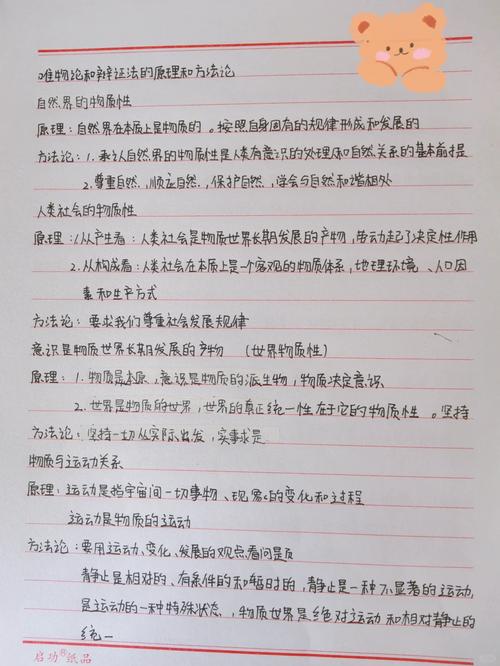 唯物论和辩证法的原理和方法论
自然界的物质性
原理：自然界在本质上是物质的。按照自身固有的规律形成和发展的
方法论：1.承认自然界的物质性是人类有意识的处理人和自然关系的基本前提
2.尊重自然，顺应自然，保护自然，学会与自然和谐相处
人类社会的物质性
原理：1.从产生看：人类社会是物质世界长期发展的产物，劳动起了决定性作用
2.从构成看：人类社会在本质上是一个客观的物质体系，地理环境、人口因
素和生产方式
方法论：要求我们尊重社会发展规律
意识是物质世界长期发展的产物 （世界物质性）
原理：1.物质是本原，意识是物质的派生物，物质决定意识
2.世界是物质的世界，世界的真正统一性在于它的物质性。坚持
方法论：坚持一切从实际出发，实事求是
物质与运动关系
原理：运动是指宇宙间一切事物、现象的变化和过程
运动是物质的运动
方法论：要用运动、变化、发展的观点看问题
静止是相对的、有条件的和暂时的，静止是一种不显著的运动，
是运动的一种特殊状态，物质世界是绝对运动和相对静止的
统一
启功®纸品